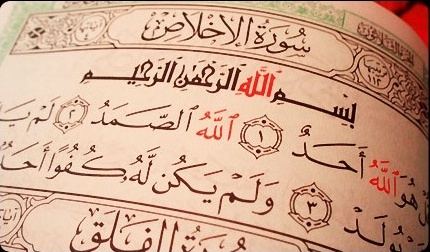 سُورَةُ الإِخْلَاصِ
بِسْمِ ٱللَّهِ ٱلرَّحْمَٰنِ ٱلرَّحِيمِ
هُوَ ٱللَّهُ أَحَدٌ ١ ٱللَّهُ ٱلصَّمَدُ ٢ لَمْ
يُولَدْ ٣ وَلَمْ يَكُن لَّهُۥ كُفُوًا أَحَدٌ
سُورَةُ الفَلَقِ